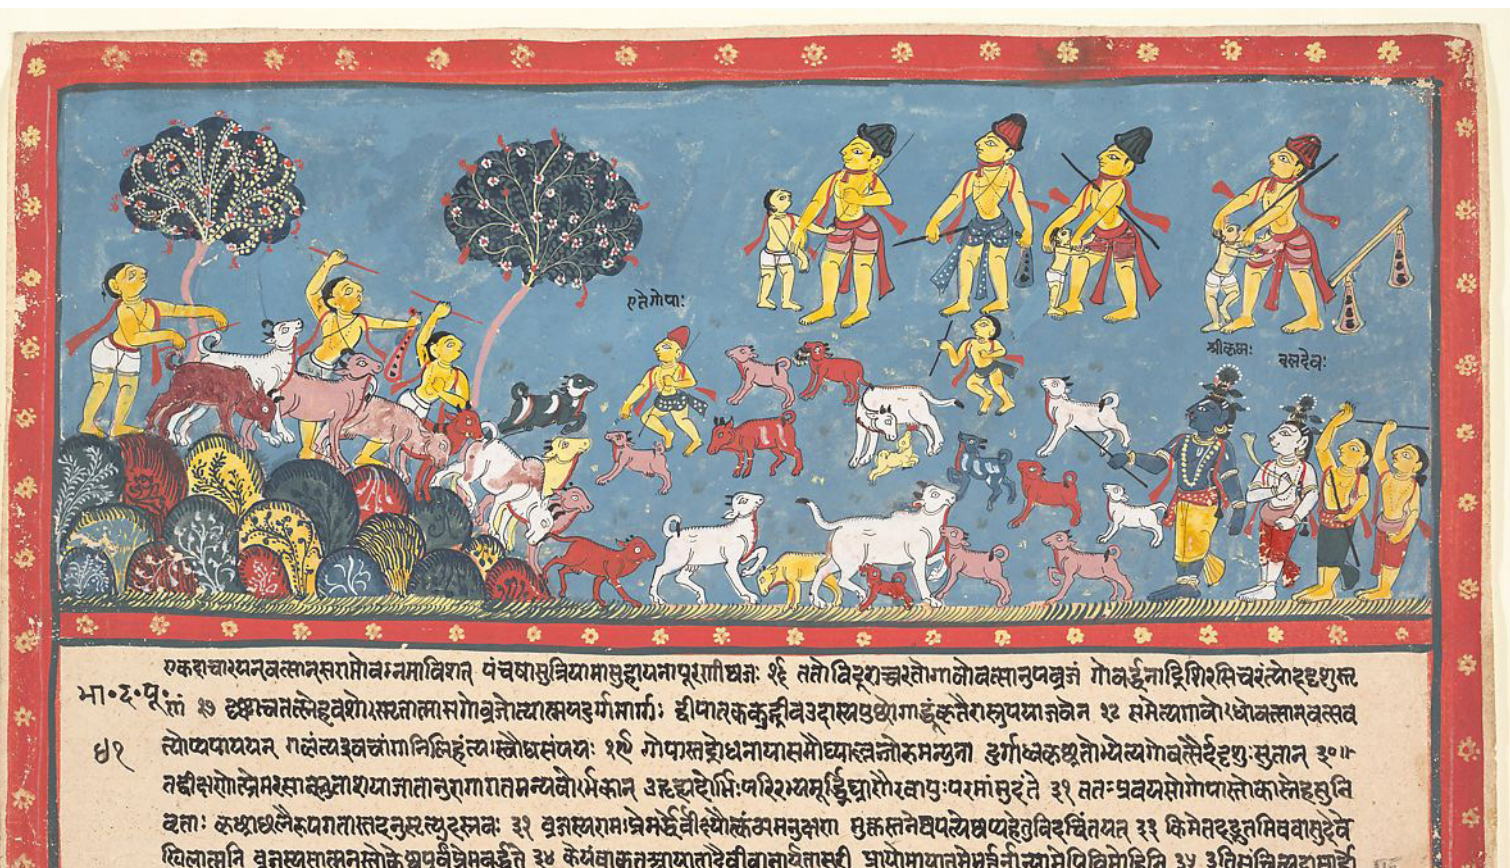 एतेगोपाः
श्रीकृष्णः
बलदेवः
एकदाचारयन्वत्सान्सरामोवनमाविशत् पंचषासुत्रियामासुहायनापूरणीष्वजः २६ ततोविदूराच्चरतोगावोवत्सानुपव्रजं गोवर्द्धनाद्रिशिरसिचरंत्योददृशुस्तृ
भा॰द॰पू॰ णं २७ दृष्ट्वाथतत्स्नेहवशोस्मृतात्मासगोव्रजोत्यात्मपदुर्गमार्गः द्वीपात्ककुद्ग्रीवउदास्यपुच्छोगाद्धुंकृतैरास्रुपयाजवेन २८ समेत्यगावोधोवत्सान्वत्सव
४१ त्योप्यपाययन् गलंत्यइवचांगानिलिहंत्यःस्वौधसंपयः २९ गोपास्तद्रोधनायासमौघ्यलज्जोरुमन्युना दुर्गाध्वकृच्छ्रतोभ्येत्यगोवत्सैर्ददृशुःसुतान् ३०॥
तदीक्षणोत्प्रेमरसाप्लुताशयाजातानुरागागतमन्यवोर्भकान् उदुह्यदोर्भिःपरिरभ्यमूर्द्ध्निघ्राणैरवापुःपरमांमुदंते ३१ ततःप्रवयसोगोपास्तोकाश्लेषसुनि
वृताः कृछ्राछनैरुपगतास्तदनुस्मृत्युदस्रवः ३२ व्रजस्यरामःप्रेमर्द्धेर्वीक्ष्यौत्कंठ्यमनुक्षणं मुक्तस्तनेष्वपत्येष्वप्यहेतुविदचिंतयत् ३३ किमेतदद्भुतमिववासुदेवे
खिलात्मनि व्रजस्यसात्मनस्तोकेष्वपूर्वंप्रेमवर्द्धते ३४ केयंवाकुतआयातादैवीवानार्युतासुरी प्रायोमायास्तुमेभर्तुर्नान्यामेपिविमोहिनी ३५